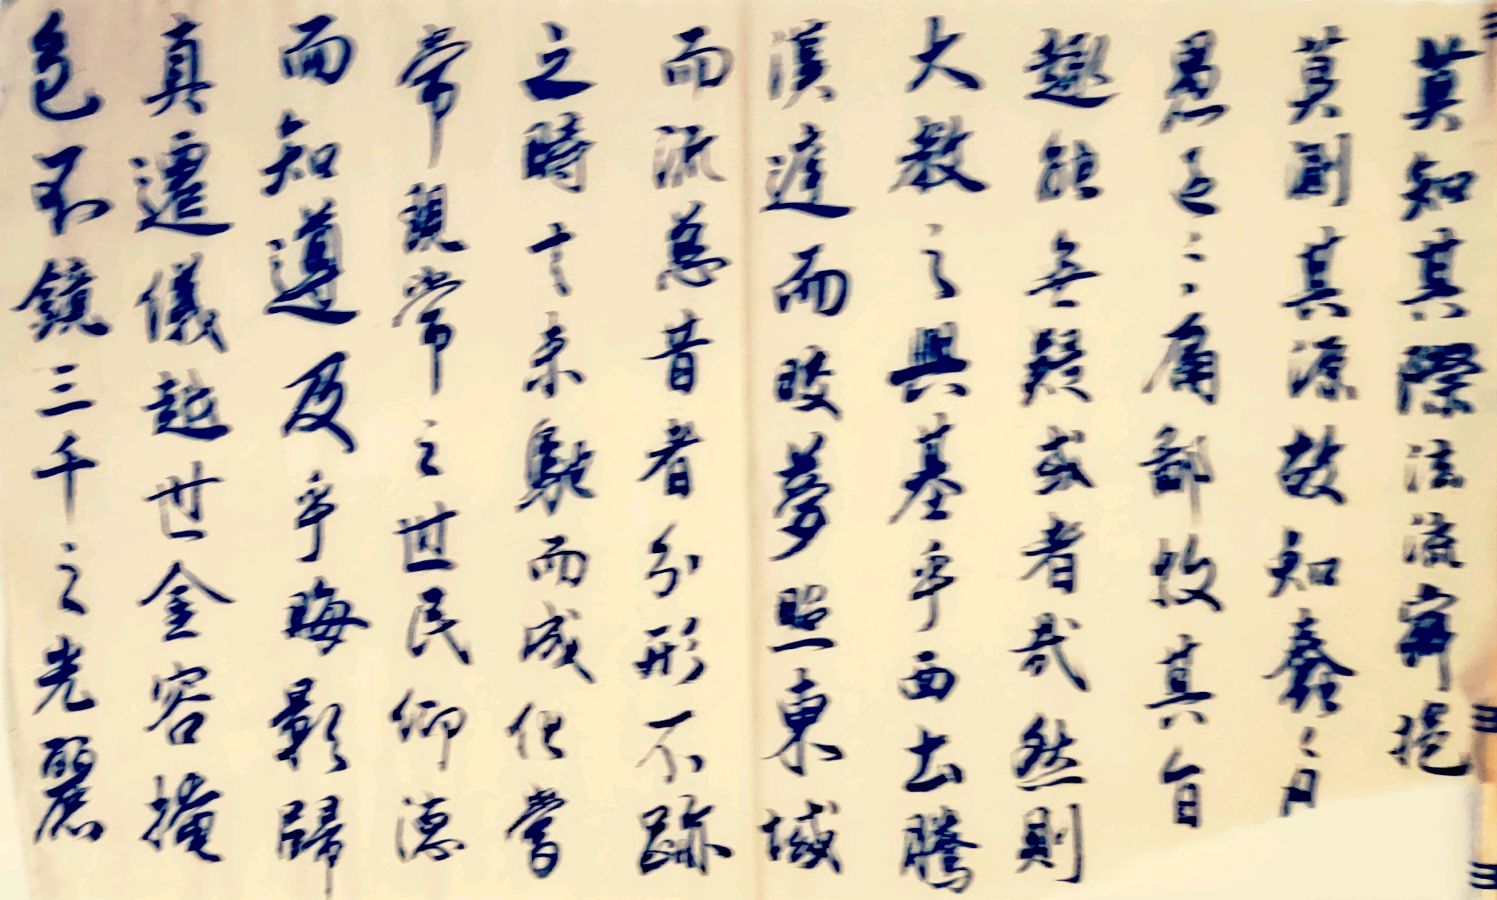 莫知其際法流寂挹
莫測其源故知蠢〻凡
愚區〻庸鄙投其旨
趣能無疑或者哉然則
大教之興基乎西土騰
漢庭而皎夢照東域
而流慈昔者分形不跡
之時言未馳而成化當
常現常之世民仰德
而知遵及乎晦影歸
真遷儀越世金容掩
色不鏡三千之光麗